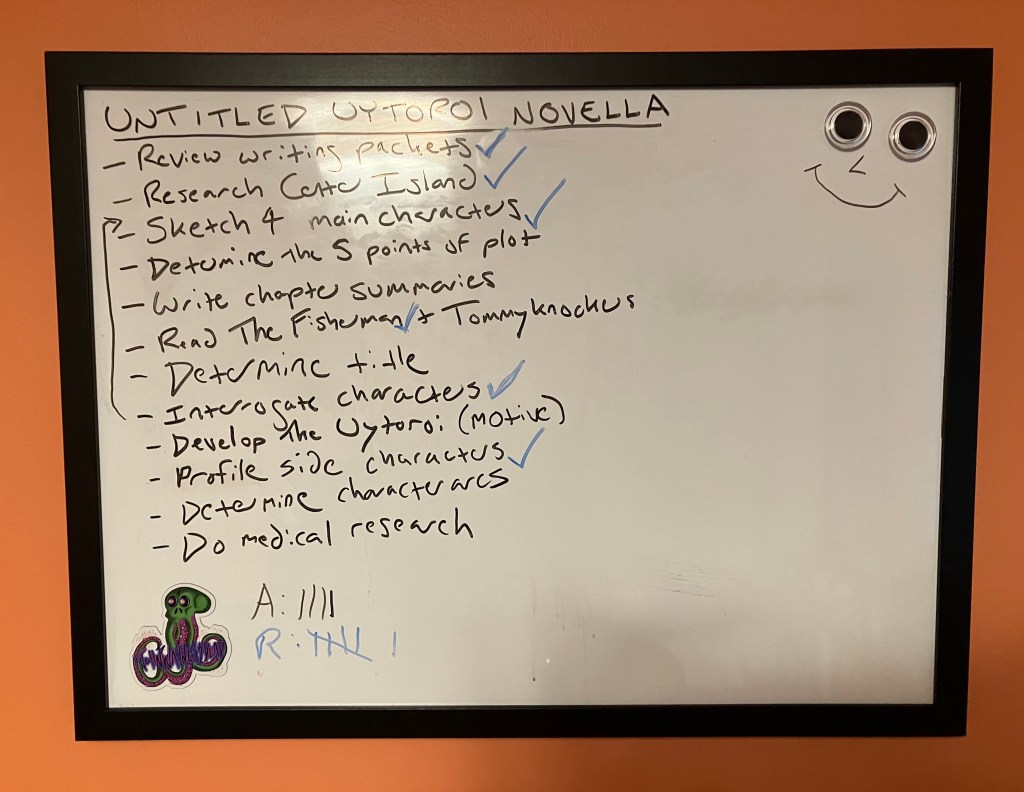 UNTITLED UYTOROI NOVELLA
- Review writing packets ✓
- Research Island ✓
- Sketch 4 main characters ✓
- Determine the 5 points of plot
- Write chapter summaries
- Read The Fisherman ✓ + Tommyknockers
- Determine title
- Interrogate characters ✓
- Develop the Uytoroi (motive)
- Profile side characters ✓
- Determine character arcs
- Do medical research
A: ||||
R: 卌 |